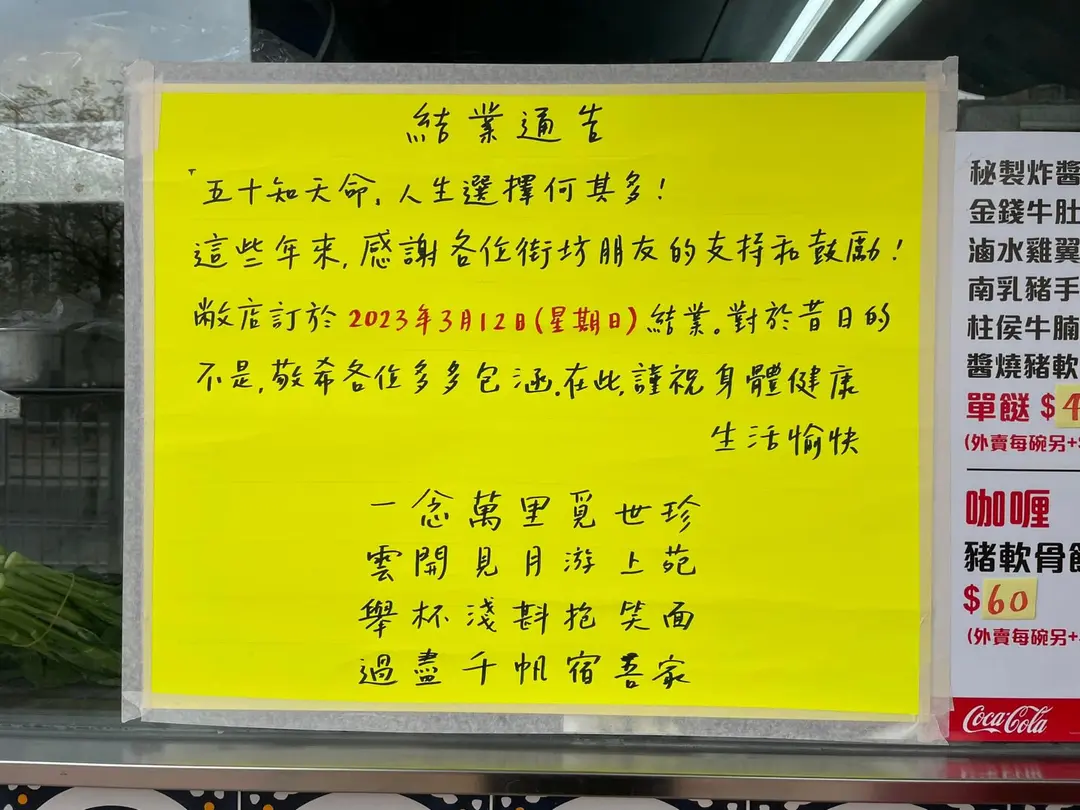 結業通告
五十知天命，人生選擇何其多！
這些年來，感謝各位街坊朋友的支持和鼓勵！
敝店訂於2023年3月12日(星期日)結業。對於昔日的
不是，敬希各位多多包涵。在此，謹祝身體健康
生活愉快
一念萬里覓世珍
雲開見月游上苑
舉杯淺斟抱笑面
過盡千帆宿吾家
秘製炸醬
金錢牛肚
滷水雞翼
南乳豬手
柱侯牛腩
醬燒豬軟
單餸 $4
(外賣每碗另+
咖喱
豬軟骨
$60
(外賣每碗另+
Coca-Cola